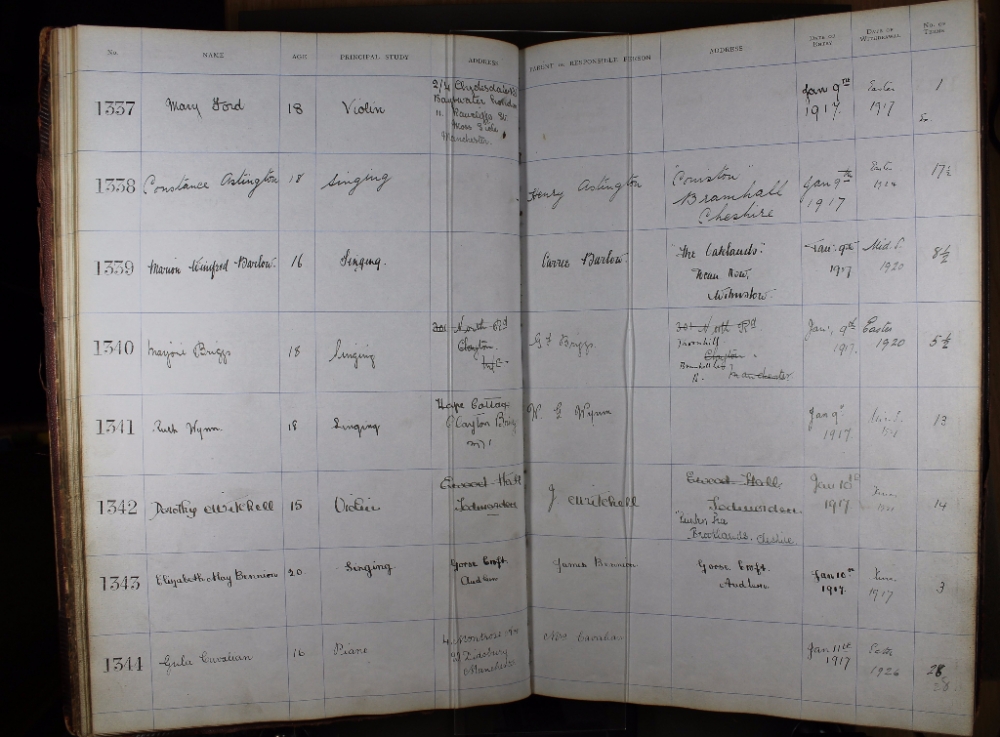 No. NAME AGE PRINCIPAL STUDY ADDRESS PARENT OR RESPONSIBLE PERSON ADDRESS DATE OF ENTRY DATE OF WITHDRAWAL NO. OF TERMS
1337 Mary Ford 18 Violin
Bayswater
Moss Side
Manchester.
Jan 9TH
1917.
Easter
1917
1
1338 Constance Astington 18 Singing
Henry Astington
Bramhall
Cheshire
Jan 9th
1917
Easter
17½
1339 Marion Winifred Barlow. 16 Singing.
Barlow
"The Oaklands."
Dean Row.
Wilmslow.
Jan. 9th
1917
Mid S.
1920
8½
1340 Marjorie Briggs 18 Singing
North Rd
Clayton.
M/C.
Briggs.
North Rd
Thornhill
Clayton.
Manchester
Jan. 9th
1917.
Easter
1920
5½
1341 Ruth Wynn. 18 Singing
Hope Cottage
Clayton Bridge
W. E Wynn
Jan 9th
1917
13
1342 Dorothy Mitchell 15 Violin
Ewood Hall
Todmorden
J Mitchell
Ewood Hall
Todmorden
Brooklands. Cheshire
Jan 10th
1917.
14
1343 Elizabeth May Bennion 20 Singing
Gorse Croft.
Audlem
James Bennion
Gorse Croft.
Audlem
Jan 10th
1917.
Xmas
1917
3
1344 16 Piano
Montrose
Didsbury
Manchester
Mrs
Jan 11th
1917
Easter
1926
28
28